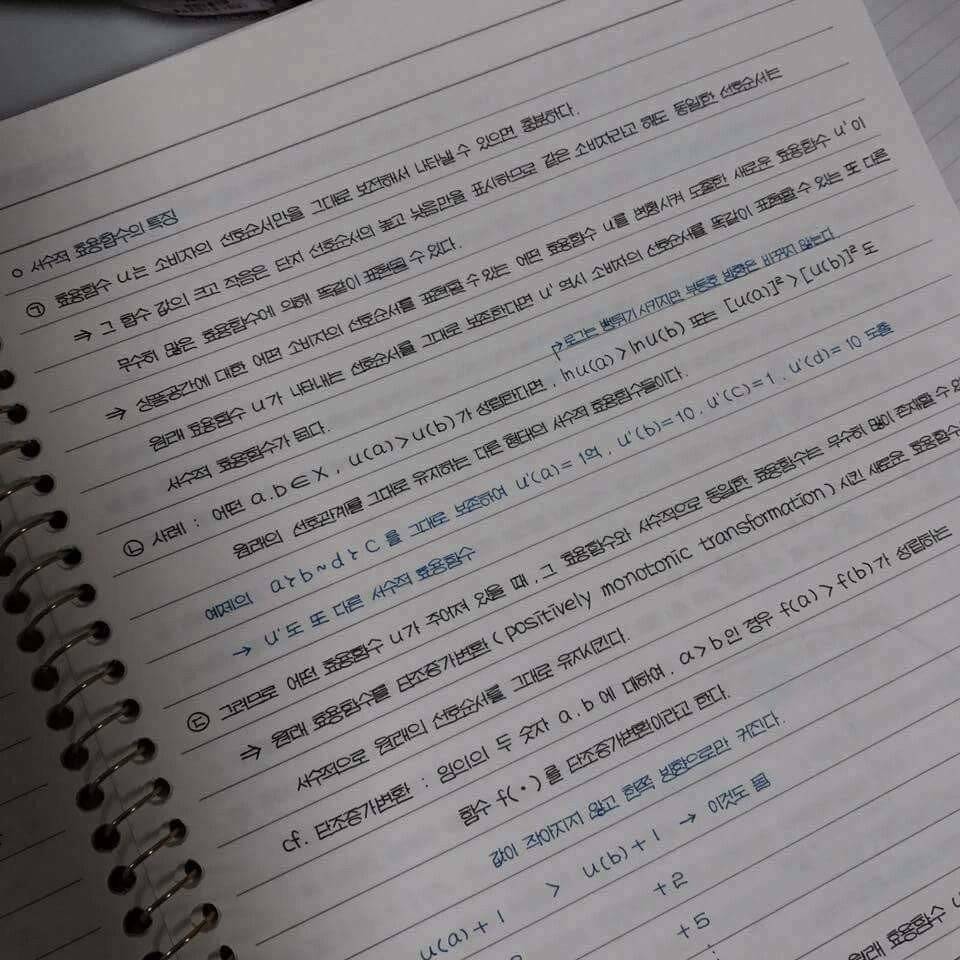 ○ 서수적 효용함수의 특징
㉠ 효용함수 u는 소비자의 선호순서만을 그대로 보전해서 나타낼 수 있으면 충분하다.
⇒ 그 함수 값의 크고 작음은 단지 선호순서의 높고 낮음만을 표시하므로 같은 소비자라고 해도 동일한 선호순서는
무수히 많은 효용함수에 의해 똑같이 표현될 수 있다.
⇒ 상품공간에 대한 어떤 소비자의 선호순서를 표현할 수 있는 어떤 효용함수 u를 변형시켜 도출한 새로운 효용함수 u'이
원래 효용함수 u가 나타내는 선호순서를 그대로 보존한다면 u' 역시 소비자의 선호순서를 똑같이 표현할 수 있는 또 다른
서수적 효용함수가 된다.
↱ 로그는 뻥튀기 시키지만 부등호 방향은 바꾸지 않는다
㉡ 사례 : 어떤 a.b∈X, u(a)>u(b)가 성립한다면, lnu(a)>lnu(b) 또는 [u(a)]²>[u(b)]²도
원래의 선호관계를 그대로 유지하는 다른 형태의 서수적 효용함수들이다.
예제의 a≻b~d≻c 를 그대로 보존하여 u'(a)=1억, u'(b)=10, u'(c)=1, u'(d)=10 도출
→ u'도 또 다른 서수적 효용함수
㉢ 그러므로 어떤 효용함수 u가 주어져 있을 때, 그 효용함수와 서수적으로 동일한 효용함수는 무수히 많이 존재할 수 있
⇒ 원래 효용함수를 단조증가변환(positively monotonic transformation)시킨 새로운 효용함수
서수적으로 원래의 선호순서를 그대로 유지시킨다.
cf. 단조증가변환 : 임의의 두 숫자 a.b에 대하여, a>b인 경우 f(a)>f(b)가 성립하는
함수 f(·)를 단조증가변환이라고 한다.
값이 작아지지 않고 한쪽 방향으로만 커진다.
u(a)+1 > u(b)+1 → 이것도 됨
+2
+5
원래 효용함수 u